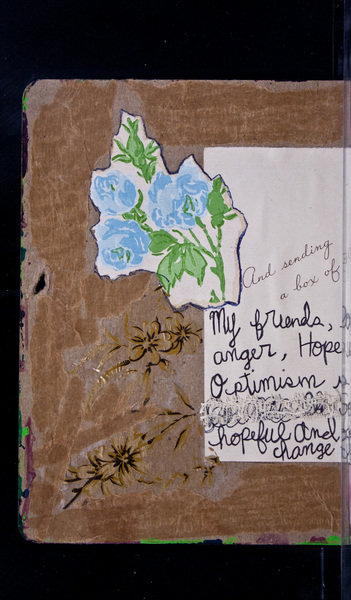 And sending
a box of
My friends,
anger, Hope
Optimism
hopeful and
change